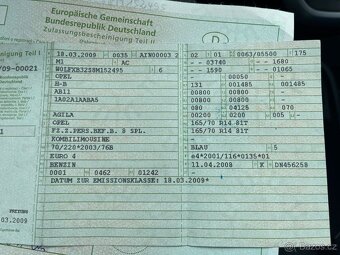 Europäische Gemeinschaft
Bundesrepublik Deutschland
Zulassungsbescheinigung Teil II
D
18.03.2009 0035 AIN00003 2 02 01 0063/05500 175
M1 AC -- 03740 -- 1680
W0LFKB32S8M152495 6 -- 1590 -- 01065
OPEL 00050 -
H-B 131 001485 001485
AB11 00800 00800
1A02A1AABA5
AGILA
OPEL 165/70 R14 81T
FZ.Z.PERS.BEF.B. 8 SPL. 165/70 R14 81T
KOMBILIMOUSINE
70/220*2003/76B BLAU 5
EURO 4 e4*2001/116*0135*01
BENZIN 11.04.2008 K DN456258
0001 0462 01242 - -
DATUM ZUR EMISSIONSKLASSE: 18.03.2009*
/09-00021